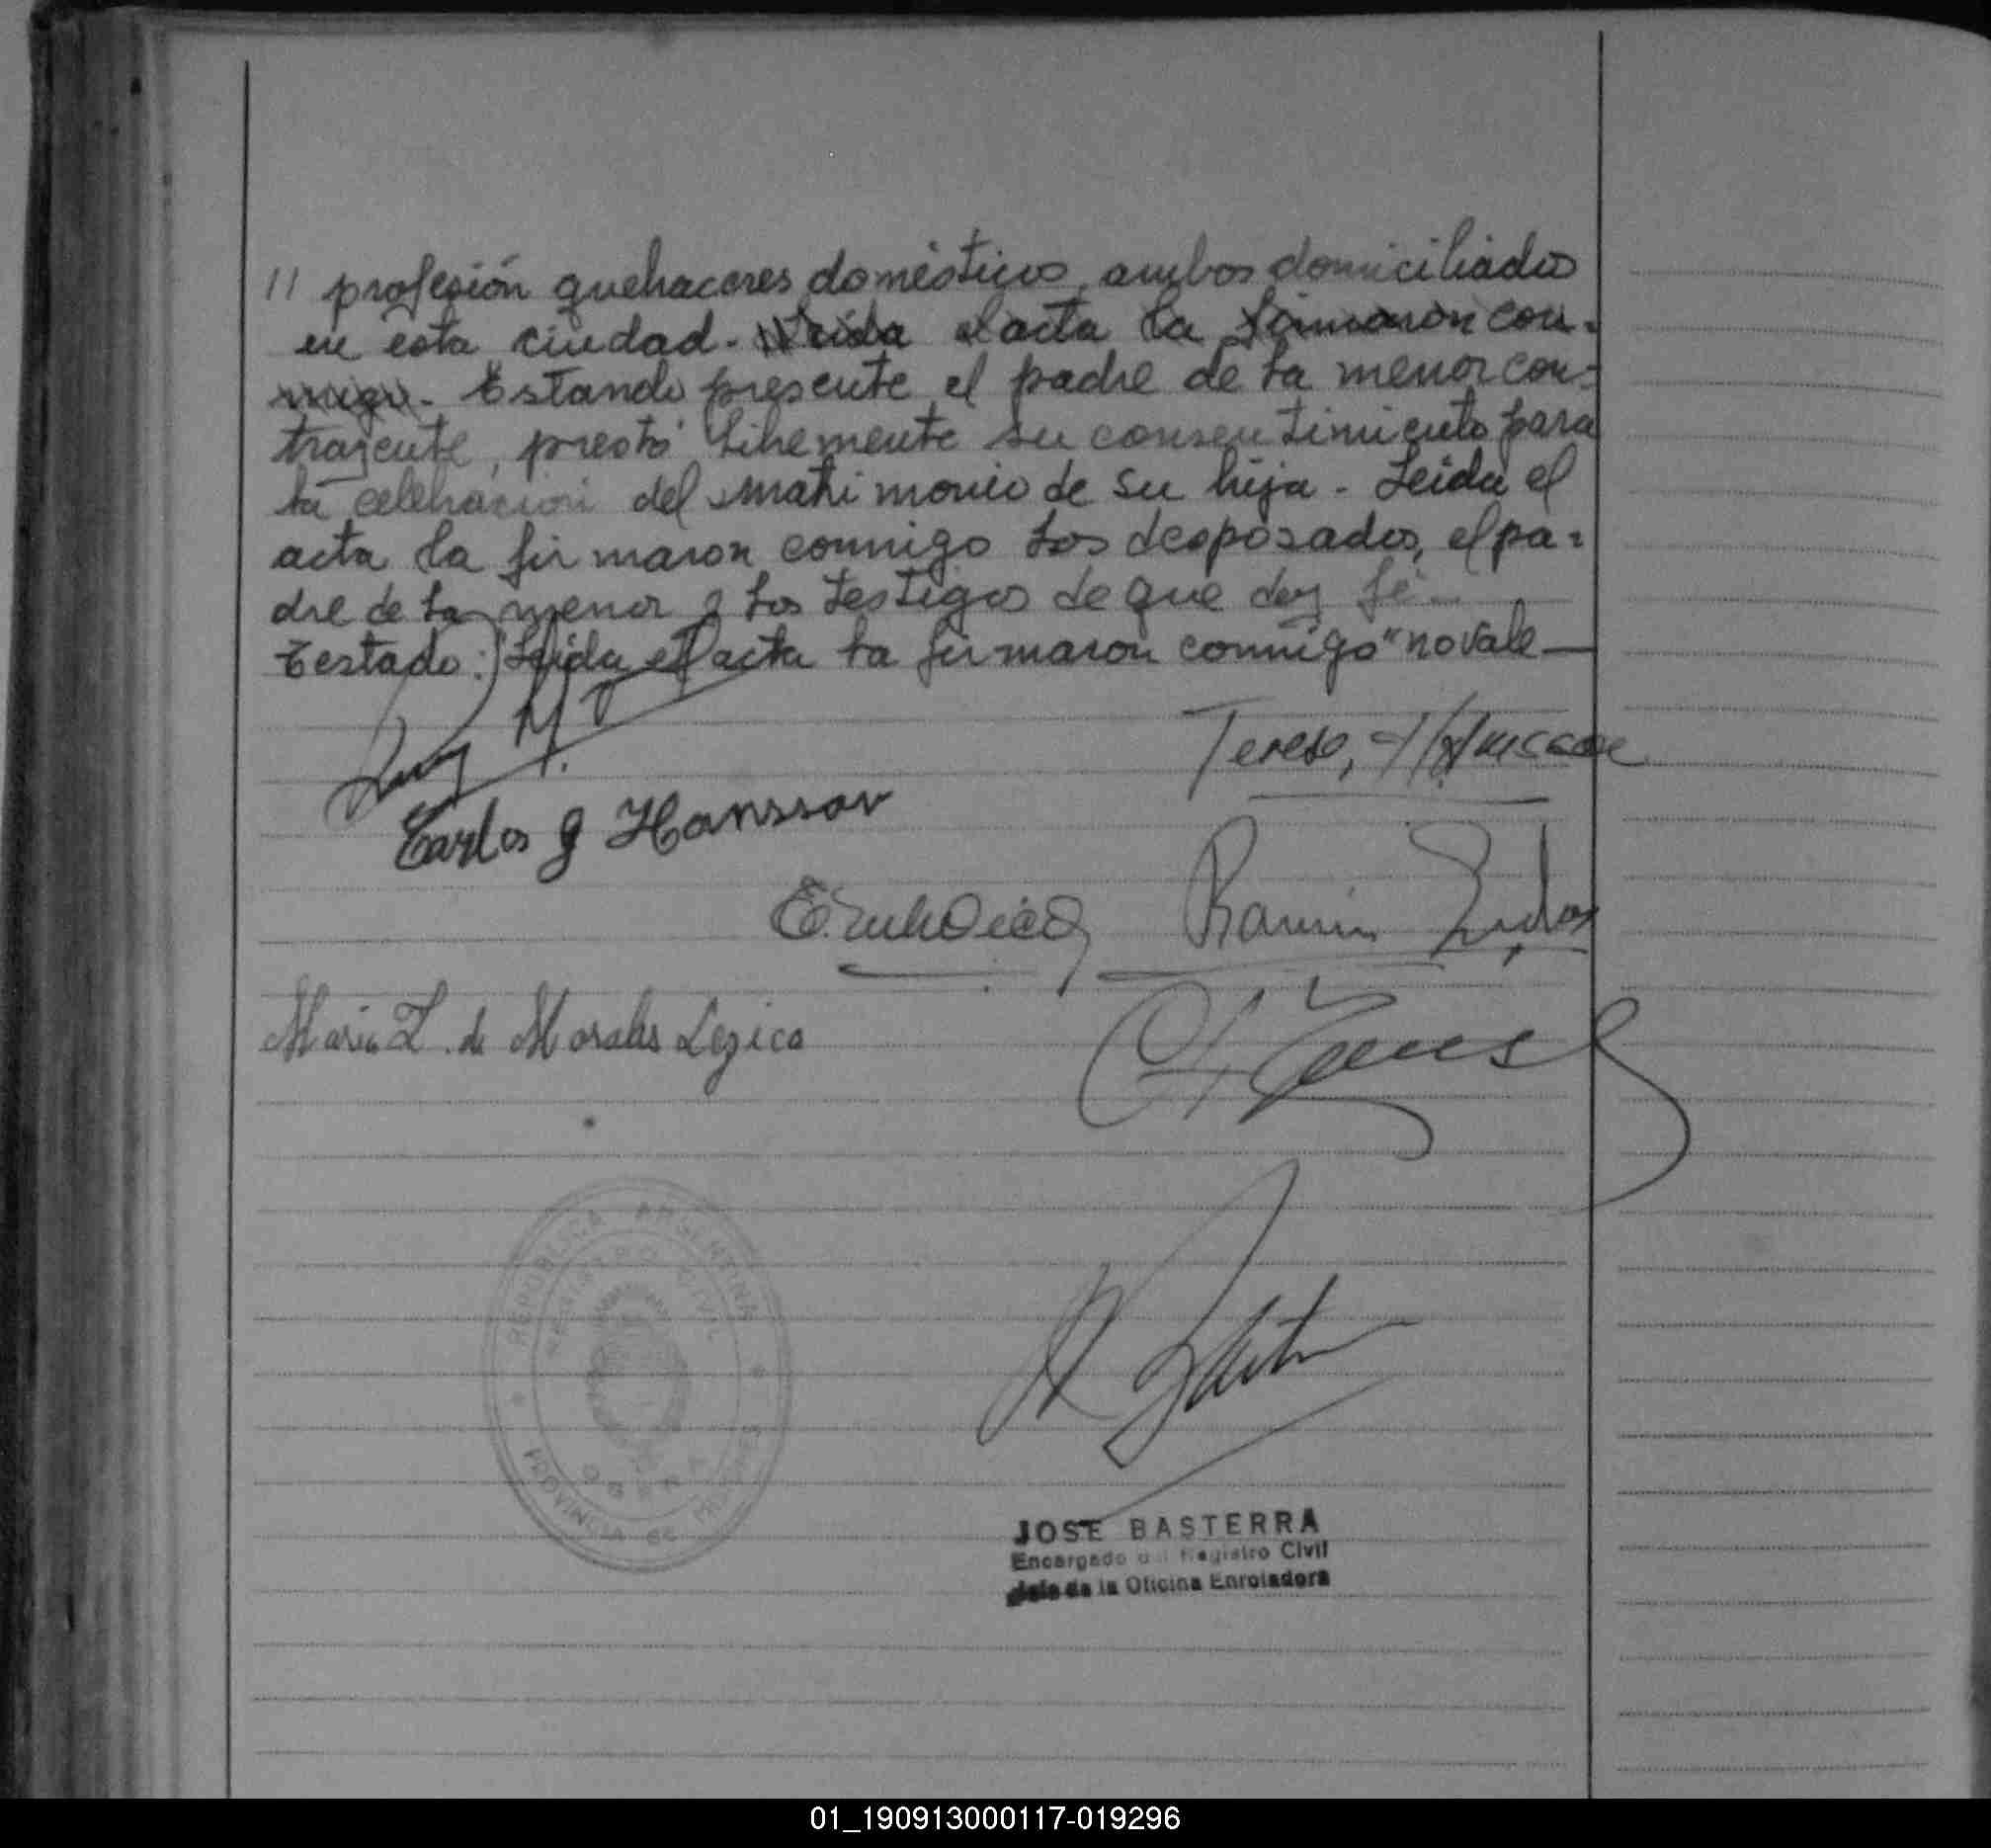 // profesión quehaceres domésticos, ambos domiciliados
en esta ciudad. Leida el acta la firmaron con-
migo. Estando presente el padre de la menor con-
trayente, prestó libremente su consentimiento para
la celebración del matrimonio de su hija. Leida el
acta la firmaron conmigo los desposados, el pa-
dre de la menor y los testigos de que doy fé.-
Testado: "Leida el acta la firmaron conmigo" no vale—
Teresa
Carlos G Hansson
Ramón
Maria L. de Morales Lezica
REPUBLICA ARGENTINA
REGISTRO CIVIL
OBERA
PROVINCIA DE MISIONES
JOSE BASTERRA
Encargado del Registro Civil
Jefe de la Oficina Enroladora
01_190913000117-019296